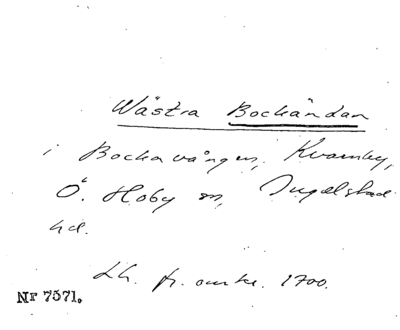 Wästra Bockändan
i Bockavången, Kvarnby,
Ö. Hoby sn, Ingelstad
hd.
Lh. fr. omkr. 1700.
Nr 7571.